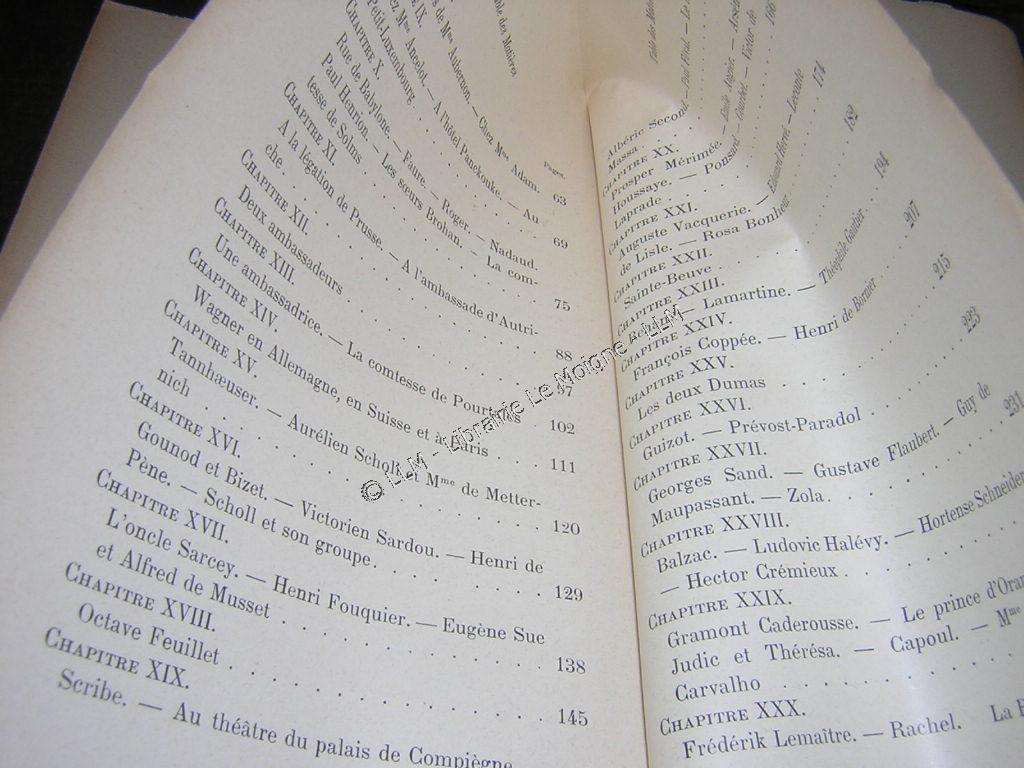 Table des Matières
Pages.
IX.
de Mme Aubernon. — Chez Mme Adam.
Mme Ancelot. 63
CHAPITRE X.
Petit-Luxembourg. — A l'hôtel Panckouke. — Au
69
Rue de Babylone. — Faure. — Roger. — Nadaud.
Paul Henrion. — Les sœurs Brohan. — La com-
tesse de Solms 75
CHAPITRE XI.
A la légation de Prusse. — A l'ambassade d'Autri-
che. 88
CHAPITRE XII.
Deux ambassadeurs 97
CHAPITRE XIII.
Une ambassadrice. — La comtesse de Pourtalès 102
CHAPITRE XIV.
Wagner en Allemagne, en Suisse et à Paris 111
CHAPITRE XV.
Tannhæuser. — Aurélien Scholl et Mme de Metter-
nich 120
CHAPITRE XVI.
Gounod et Bizet. — Victorien Sardou. — Henri de
Pène. — Scholl et son groupe. 129
CHAPITRE XVII.
L'oncle Sarcey. — Henri Fouquier. — Eugène Sue
et Alfred de Musset 138
CHAPITRE XVIII.
Octave Feuillet 145
CHAPITRE XIX.
Scribe. — Au théâtre du palais de Compiègne
Table des
Albéric Second. — Paul Féval. — Le
Massa 166
CHAPITRE XX.
Prosper Mérimée. — Emile Augier. — Arsène
Houssaye. — Ponsard. — Gambet. — Victor de
Laprade 174
CHAPITRE XXI.
Auguste Vacquerie. — Edouard Hervé. — Leconte
de Lisle. — Rosa Bonheur 182
CHAPITRE XXII.
Sainte-Beuve 194
CHAPITRE XXIII.
Renan. — Lamartine. — Théophile Gautier. 207
CHAPITRE XXIV.
François Coppée. — Henri de Bornier 215
CHAPITRE XXV.
Les deux Dumas 223
CHAPITRE XXVI.
Guizot. — Prévost-Paradol 231
CHAPITRE XXVII.
Georges Sand. — Gustave Flaubert. — Guy de
Maupassant. — Zola.
CHAPITRE XXVIII.
Balzac. — Ludovic Halévy. — Hortense Schneider
— Hector Crémieux
CHAPITRE XXIX.
Gramont Caderousse. — Le prince d'Oran
Judic et Thérésa. — Capoul. — Mme
Carvalho
CHAPITRE XXX.
Frédérik Lemaître. — Rachel. La
© LLM - Librairie Le Moigne - LLM